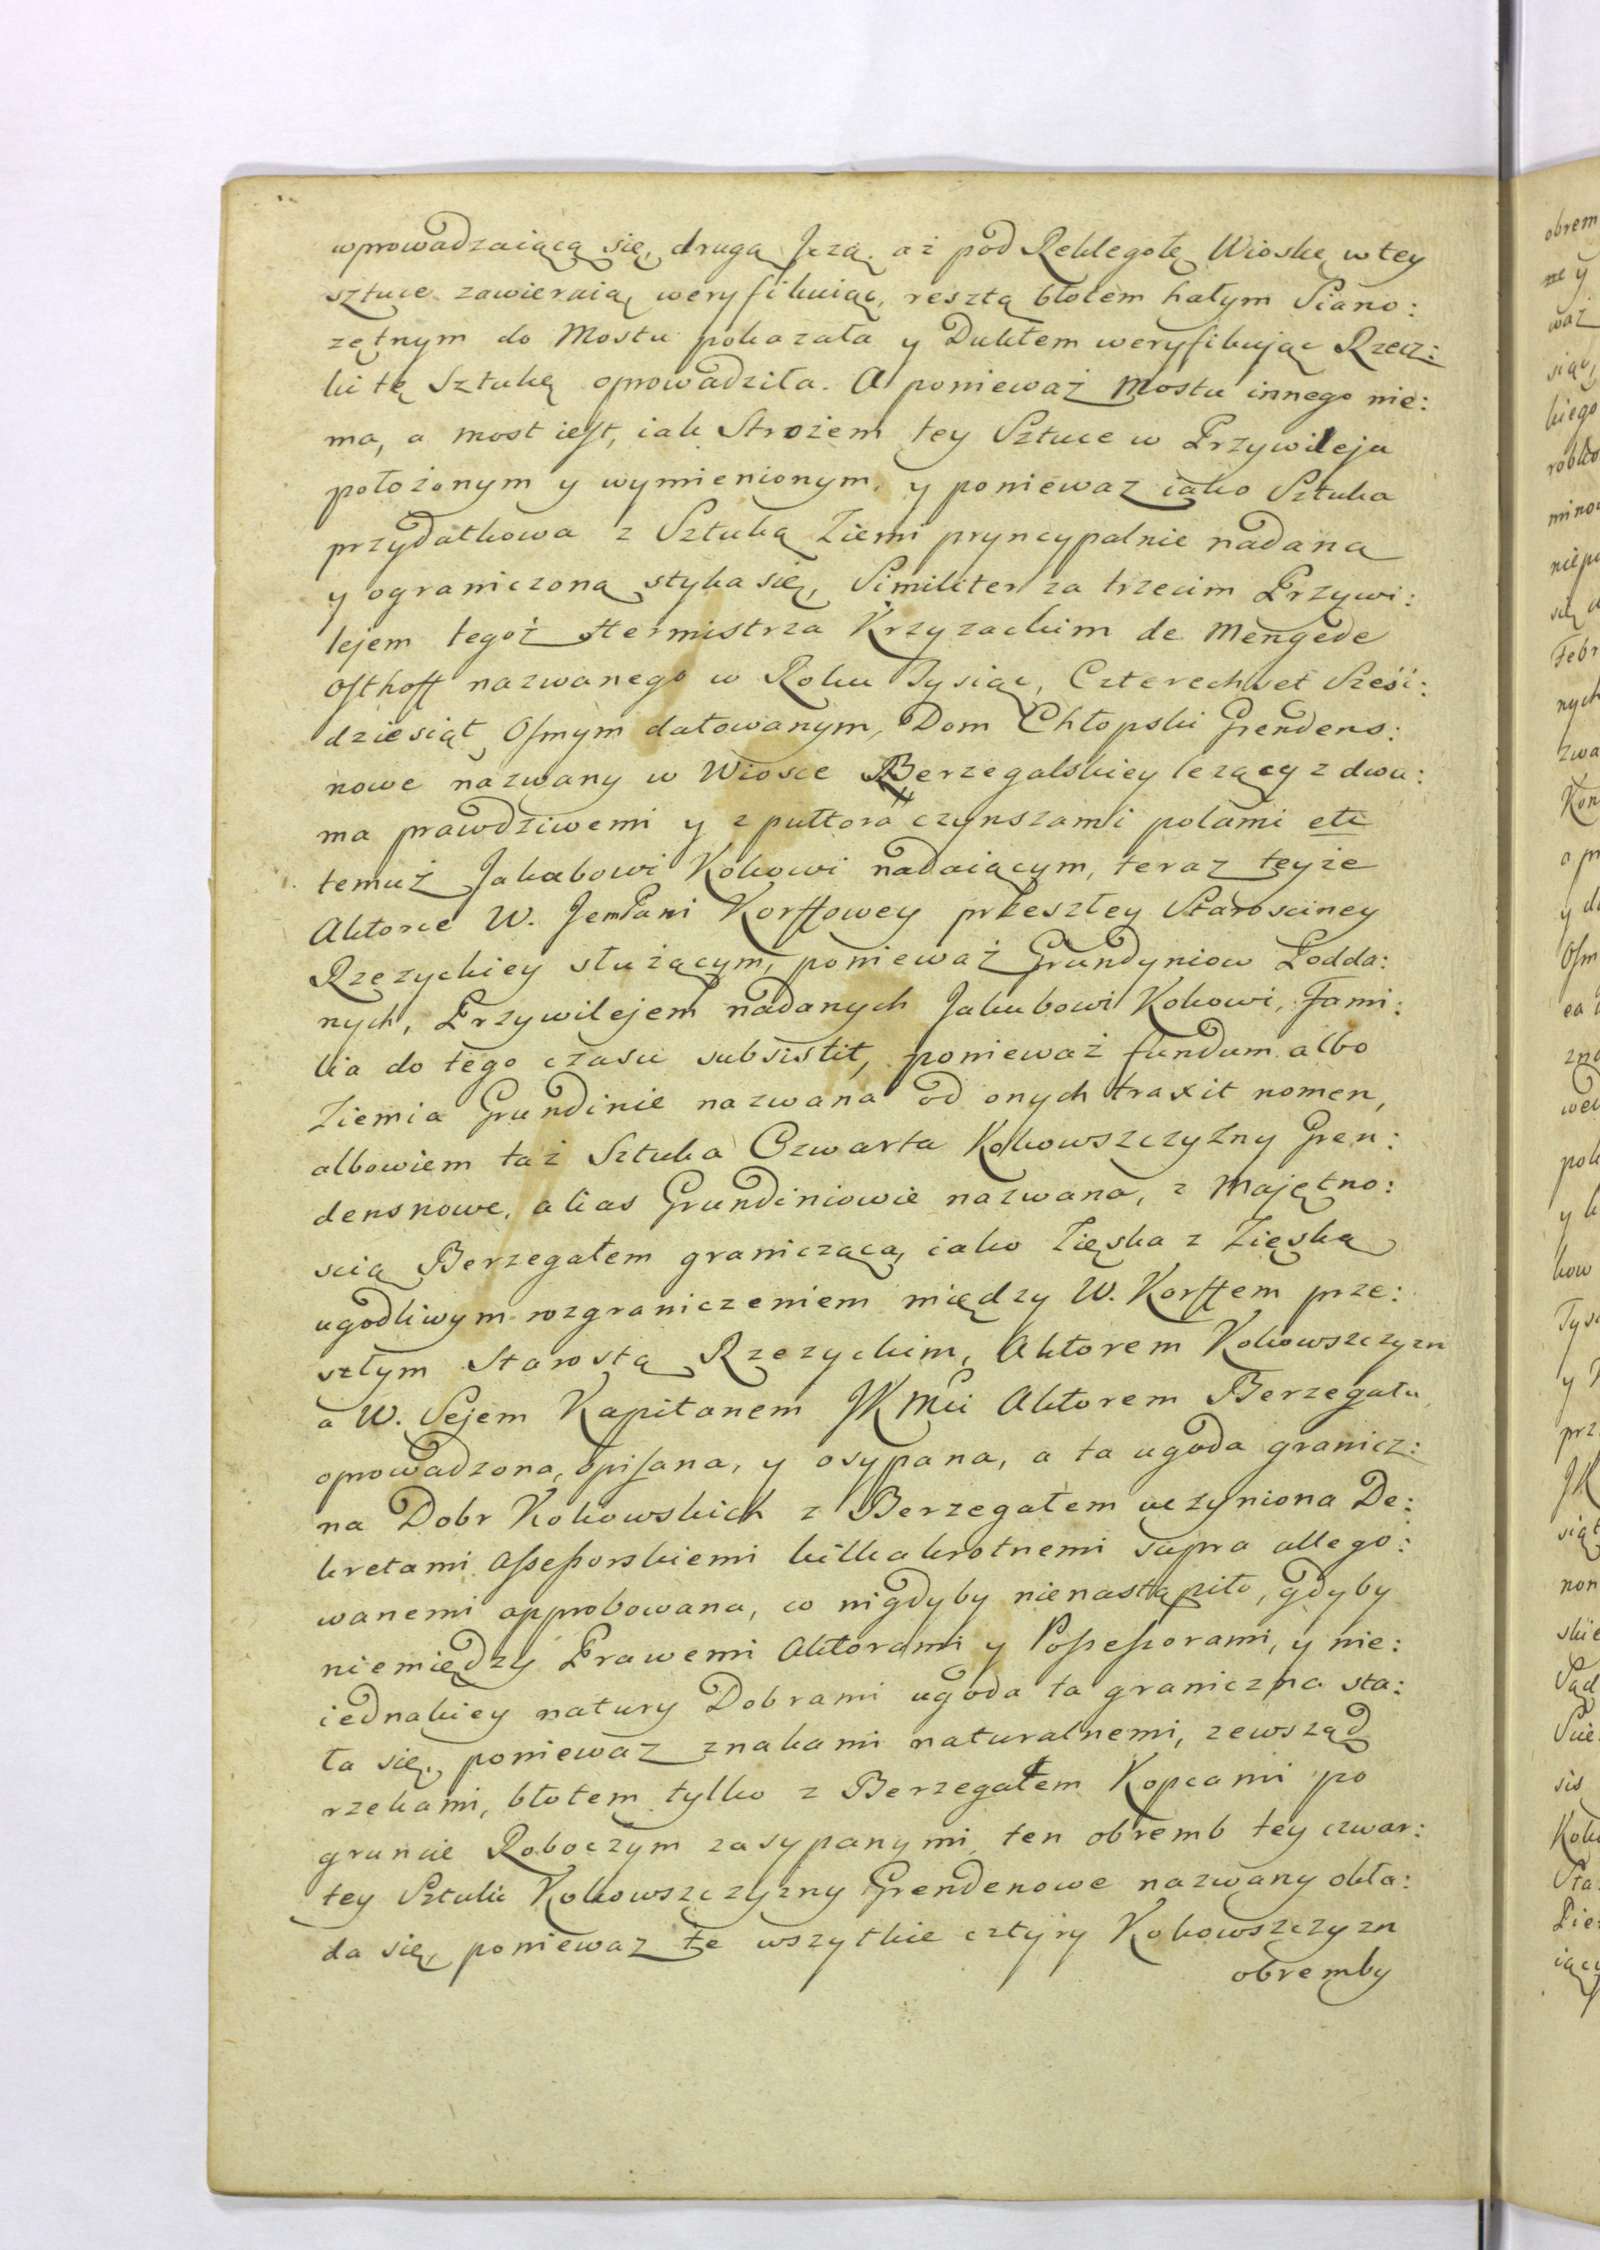 wprowadzaiącą się, drugą Jczą, aż pod Reklegołę Wioskę w tey
sztuce zawieraią weryfikuiąc, resztą błotem hałym Siano:
zętnym do Mostu pokazała y Duktem weryfikując Rzecz:
ki tę Sztukę oprowadziła. A ponieważ Mostu innego nie:
ma, a most iest, iak Strożem tey Sztuce w Przywileju
położonym y wymienionym, y poniewaz iako Sztuka
przydatkowa z Sztuką Ziemi pryncypalnie nadana
y ograniczoną styka się, Similiter za trzecim Przywi:
lejem tegoż Hermistrza Krzyzackim de Mengede
Osthoff nazwanego w Roku Tysiąc, Czterechset Sześć:
dziesiąt Osmym datowanym, Dom Chłopski Grendens:
nowe nazwany w Wiosce Berzegalskiey lezący z dwu:
ma prawdziwemi y z pułtora czynszami polami etc
temuż Jakubowi Kokowi nadaiącym, teraz teyże
Aktorce W. JemPani Korffowey przeszłey Starosciney
Rzezyckiey służącym, ponieważ Grundyniow Podda:
nych, Przywilejem nadanych Jakubowi Kokowi, Fami:
lia do tego czasu subsistit, ponieważ fundum albo
Ziemia Grundinie nazwana od onych traxit nomen,
albowiem taż Sztuka Czwarta Kokowszczyzny Gren:
densnowe, alias Grundiniowie nazwana, z Majętno:
scią Berzegałem graniczącą, iako Zięska z Zięską
ugodliwym rozgraniczeniem między W. Korffem prze:
szłym Starostą Rzezyckim, Aktorem Kokowszczyzn
a W. Sejem Kapitanem JKMci Aktorem Berzegału
oprowadzona, opisana, y osypana, a ta ugoda granicz:
na Dobr Kokowskich z Berzegałem uczyniona De:
kretami Assessorskiemi kilkakrotnemi supra allego:
wanemi approbowana, co nigdyby nienastąpiło, gdyby
niemiędzy Prawemi Aktorami y Possessorami, y nie:
iednakiey natury Dobrami ugoda ta graniczna sta:
ła się, poniewaz znakami naturalnemi, zewsząd
rzekami, błotem tylko z Berzegałem Kopcami po
gruncie Roboczym zasypanymi, ten obremb tey czwar:
tey Sztuki Kokowszczyzny Grendenowe nazwany okła:
da się, poniewaz te wszytkie cztyry Kokowszczyzn
obremby